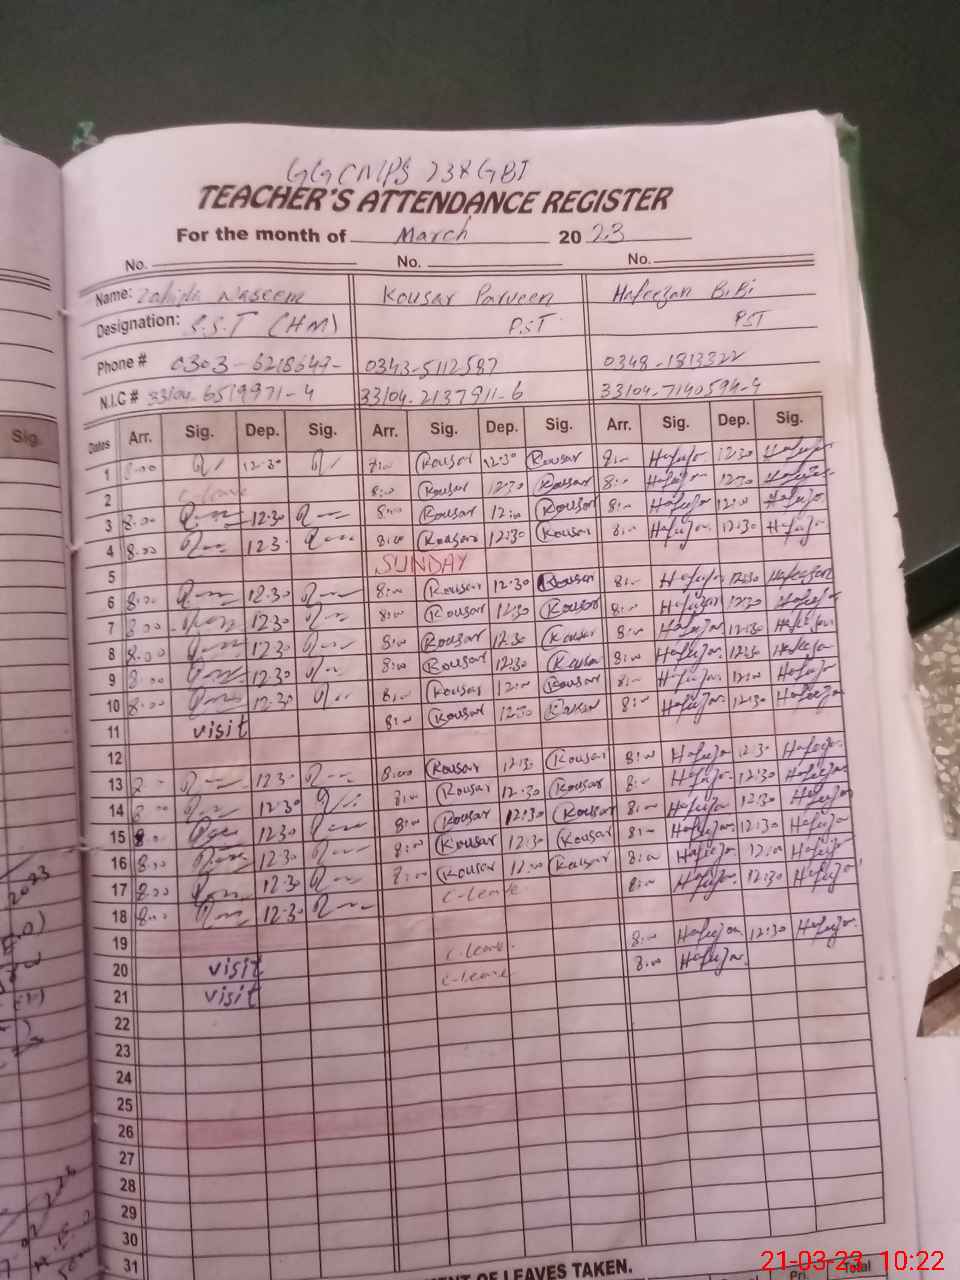 GGCMPS 238 GB I
TEACHER'S ATTENDANCE REGISTER
For the month of March 2023
No. No. No.
Name: Zahida Naseem Kousar Parveen Hafeezan BiBi
Designation: S.S.T (HM) P.S.T PST
Phone # 0303-6218647- 0343-5112587 0348-1813322
N.I.C # 33104-6519971-4 33104-2137911-6 33104-7140594-4
Sig.
Dates Arr. Sig. Dep. Sig. Arr. Sig. Dep. Sig. Arr. Sig. Dep. Sig.
1 8:00 12:30 8:00 Kousar 12:30 Kousar 8:00 Hafeezan 12:30 Hafeezan
2 C-leave 8:00 Kousar 12:30 Kousar 8:00 Hafeezan 12:30 Hafeezan
3 8:00 12:30 8:00 Kousar 12:00 Kousar 8:00 Hafeezan 12:00 Hafeezan
4 8:00 12:30 8:00 Kousar 12:30 Kousar 8:00 Hafeezan 12:30 Hafeezan
5 SUNDAY
6 8:00 12:30 8:00 Kousar 12:30 Kousar 8:00 Hafeezan 12:30 Hafeezan
7 8:00 12:30 8:00 Kousar 12:30 Kousar 8:00 Hafeezan 12:30 Hafeezan
8 8:00 12:30 8:00 Kousar 12:30 Kousar 8:00 Hafeezan 12:30 Hafeezan
9 8:00 12:30 8:00 Kousar 12:30 Kousar 8:00 Hafeezan 12:30 Hafeezan
10 8:00 12:30 8:00 Kousar 12:00 Kousar 8:00 Hafeezan 12:00 Hafeezan
11 visit 8:00 Kousar 12:30 Kousar 8:00 Hafeezan 12:30 Hafeezan
12
13 8:00 12:30 8:00 Kousar 12:30 Kousar 8:00 Hafeezan 12:30 Hafeezan
14 8:00 12:30 8:00 Kousar 12:30 Kousar 8:00 Hafeezan 12:30 Hafeezan
15 8:00 12:30 8:00 Kousar 12:30 Kousar 8:00 Hafeezan 12:30 Hafeezan
16 8:00 12:30 8:00 Kousar 12:30 Kousar 8:00 Hafeezan 12:30 Hafeezan
17 8:00 12:30 8:00 Kousar 12:00 Kousar 8:00 Hafeezan 12:00 Hafeezan
18 8:00 12:30 C-leave 8:00 Hafeezan 12:30 Hafeezan
19
20 visit C-leave 8:00 Hafeezan 12:30 Hafeezan
21 visit C-leave 8:00 Hafeezan
22
23
24
25
26
27
28
29
30
31
OF LEAVES TAKEN.
Total
21-03-23 10:22